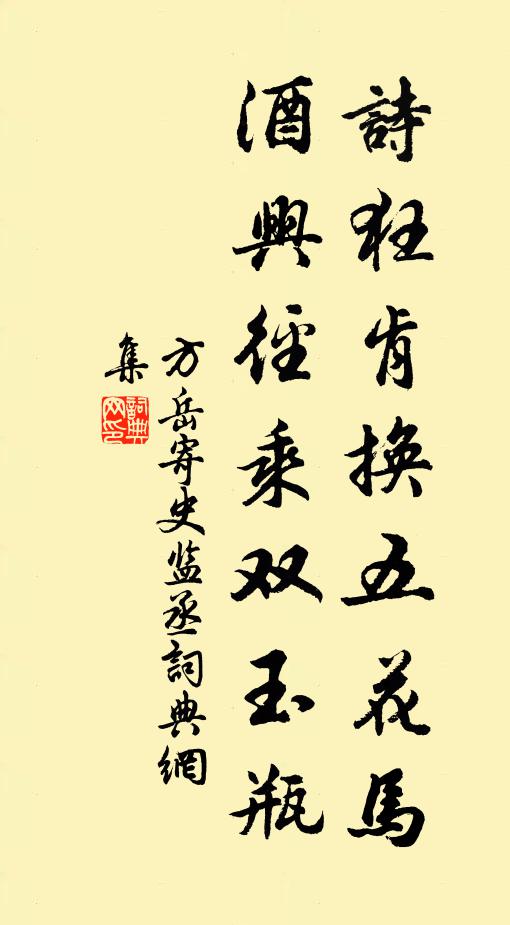 詩狂肯換五花馬
酒興徑乘双玉瓶
方岳寄史监丞詞典網
集
詞典
网印